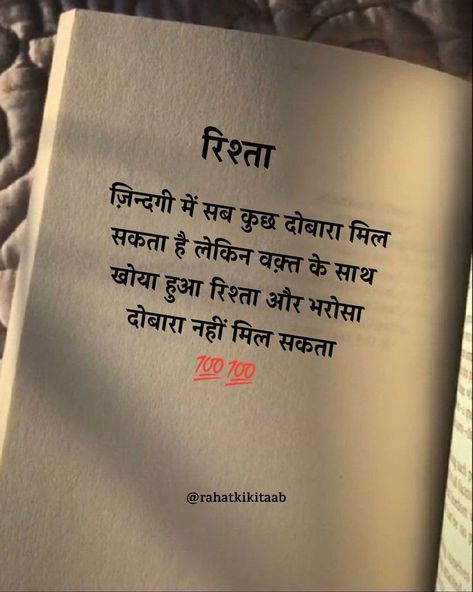 रिश्ता
ज़िन्दगी में सब कुछ दोबारा मिल
सकता है लेकिन वक़्त के साथ
खोया हुआ रिश्ता और भरोसा
दोबारा नहीं मिल सकता
💯💯
@rahatkikitaab